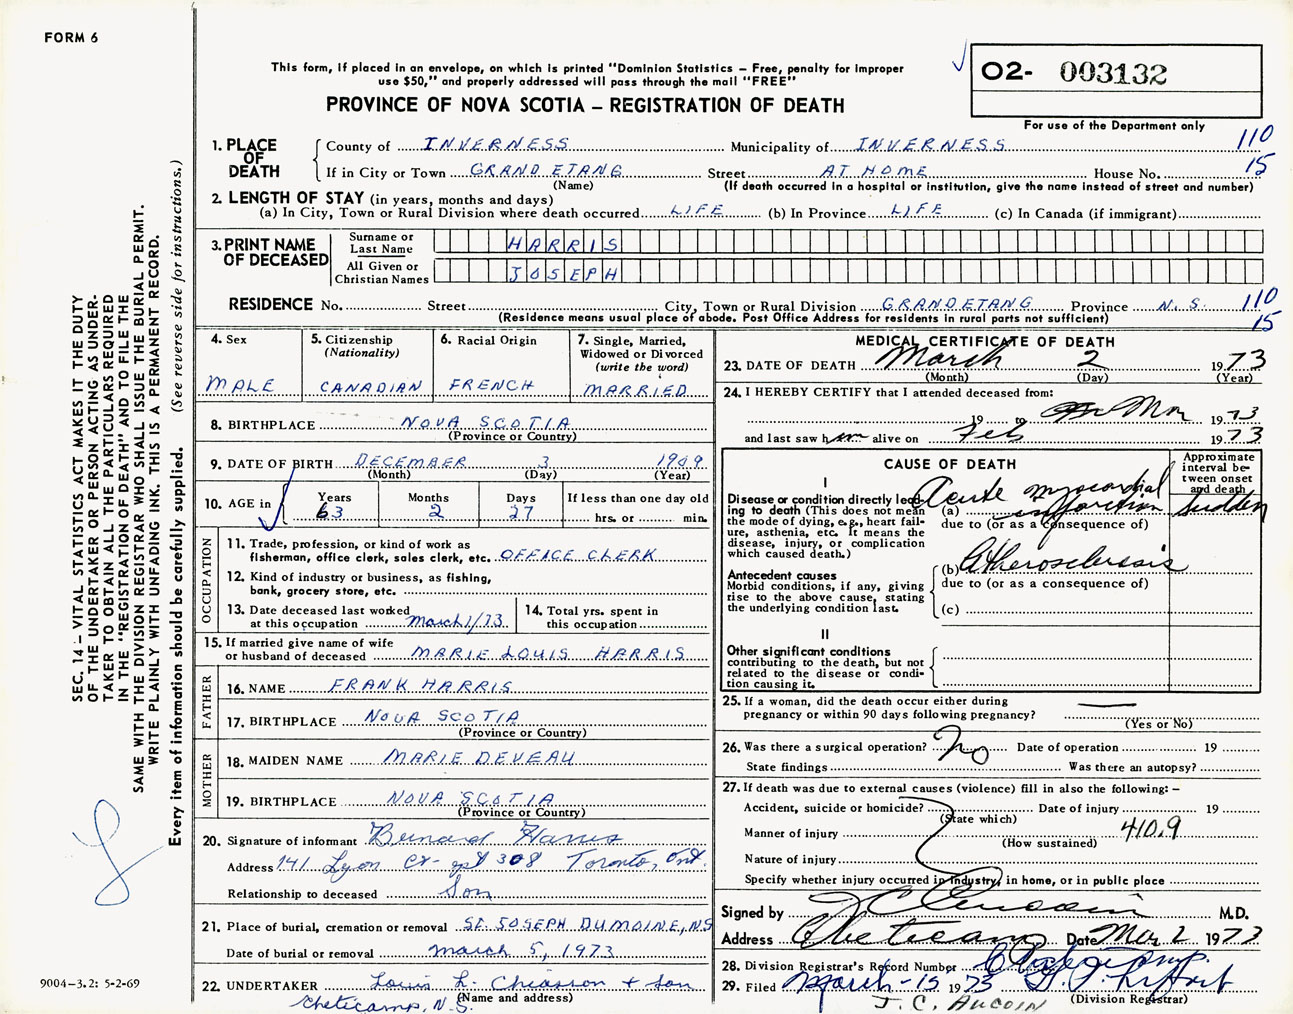 FORM 6
This form, if placed in an envelope, on which is printed "Dominion Statistics – Free, penalty for improper
use $50," and properly addressed will pass through the mail "FREE"
O2- 003132
PROVINCE OF NOVA SCOTIA – REGISTRATION OF DEATH
For use of the Department only
1. PLACE OF DEATH
County of INVERNESS Municipality of INVERNESS 110
If in City or Town GRAND ETANG Street AT HOME House No. 15
(Name) (If death occurred in a hospital or institution, give the name instead of street and number)
2. LENGTH OF STAY (in years, months and days)
(a) In City, Town or Rural Division where death occurred LIFE (b) In Province LIFE (c) In Canada (if immigrant)
3. PRINT NAME OF DECEASED
Surname or Last Name HARRIS
All Given or Christian Names JOSEPH
RESIDENCE No. Street City, Town or Rural Division GRAND ETANG Province N.S. 110
(Residence means usual place of abode. Post Office Address for residents in rural parts not sufficient) 15
4. Sex
MALE
5. Citizenship
(Nationality)
CANADIAN
6. Racial Origin
FRENCH
7. Single, Married,
Widowed or Divorced
(write the word)
MARRIED
8. BIRTHPLACE NOVA SCOTIA
(Province or Country)
9. DATE OF BIRTH DECEMBER 3 1909
(Month) (Day) (Year)
10. AGE in Years Months Days If less than one day old
63 2 27 hrs. or min.
OCCUPATION
11. Trade, profession, or kind of work as
fisherman, office clerk, sales clerk, etc. OFFICE CLERK
12. Kind of industry or business, as fishing,
bank, grocery store, etc.
13. Date deceased last worked
at this occupation March 1/73
14. Total yrs. spent in
this occupation
15. If married give name of wife
or husband of deceased MARIE LOUIS HARRIS
FATHER
16. NAME FRANK HARRIS
17. BIRTHPLACE NOVA SCOTIA
(Province or Country)
MOTHER
18. MAIDEN NAME MARIE DEVEAU
19. BIRTHPLACE NOVA SCOTIA
(Province or Country)
20. Signature of informant Bernard Harris
Address 141 Lyon Ct- apt 308 Toronto, Ont.
Relationship to deceased Son
21. Place of burial, cremation or removal ST. JOSEPH DUMOINE, NS
Date of burial or removal March 5, 1973
22. UNDERTAKER Louis L. Chiasson + Son
(Name and address)
Cheticamp, N.S.
MEDICAL CERTIFICATE OF DEATH
23. DATE OF DEATH March 2 1973
(Month) (Day) (Year)
24. I HEREBY CERTIFY that I attended deceased from:
19 to Mar 1973
and last saw him alive on Feb 1973
CAUSE OF DEATH
Approximate
interval be-
tween onset
and death
I
Disease or condition directly lead-
ing to death (This does not mean
the mode of dying, e.g., heart fail-
ure, asthenia, etc. It means the
disease, injury, or complication
which caused death.)
(a) Acute myocardial infarction sudden
due to (or as a consequence of)
Antecedent causes
Morbid conditions, if any, giving
rise to the above cause, stating
the underlying condition last.
(b) Atherosclerosis
due to (or as a consequence of)
(c)
II
Other significant conditions
contributing to the death, but not
related to the disease or condi-
tion causing it.
25. If a woman, did the death occur either during
pregnancy or within 90 days following pregnancy?
(Yes or No)
26. Was there a surgical operation? No Date of operation 19
State findings Was there an autopsy?
27. If death was due to external causes (violence) fill in also the following: –
Accident, suicide or homicide? Date of injury 19
(State which)
Manner of injury 410.9
(How sustained)
Nature of injury
Specify whether injury occurred in industry, in home, or in public place
Signed by J C Aucoin M.D.
Address Cheticamp Date Mar 2 1973
28. Division Registrar's Record Number
29. Filed March-15 1973
(Division Registrar)
J.C. AUCOIN
SEC. 14 – VITAL STATISTICS ACT MAKES IT THE DUTY
OF THE UNDERTAKER OR PERSON ACTING AS UNDER-
TAKER TO OBTAIN ALL THE PARTICULARS REQUIRED
IN THE "REGISTRATION OF DEATH" AND TO FILE THE
SAME WITH THE DIVISION REGISTRAR WHO SHALL ISSUE THE BURIAL PERMIT.
WRITE PLAINLY WITH UNFADING INK. THIS IS A PERMANENT RECORD.
Every item of information should be carefully supplied. (See reverse side for instructions.)
9004-3.2: 5-2-69